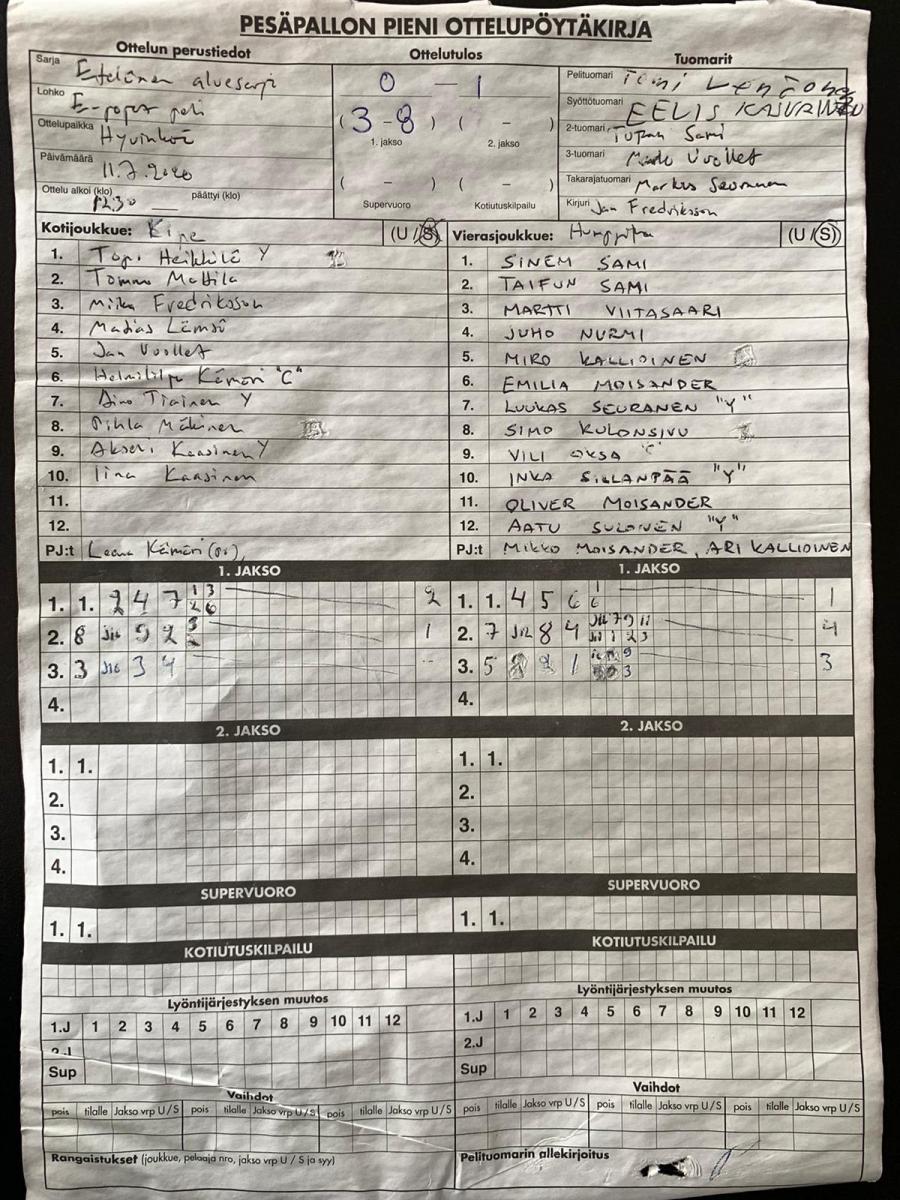 PESÄPALLON PIENI OTTELUPÖYTÄKIRJA
Ottelun perustiedot
Ottelutulos
Tuomarit
Sarja Eteläinen
Lohko
Ottelupaikka Hyvinkää
Päivämäärä 11.7.2020
Ottelu alkoi (klo) 12.30 päättyi (klo)
0 – 1
( 3 – 8 ) ( – )
1. jakso 2. jakso
( – ) ( – )
Supervuoro Kotiutuskilpailu
Pelituomari
Syöttötuomari EELIS
2-tuomari Sami
3-tuomari Vuollet
Takarajatuomari Markus Seuranen
Kirjuri Jan Fredriksson
Kotijoukkue: (U / S)
1. Topi Heikkilä Y
2. Tommi Mattila
3. Miika Fredriksson
4. Matias Lämsä
5. Jan Vuollet
6. Kämäri "C"
7. Aino Tiainen Y
8. Pihla Mäkinen
9. Akseli Kaasinen Y
10. Iina Kaasinen
11.
12.
PJ:t Leena Kämäri
Vierasjoukkue: (U / S)
1. SINEM SAMI
2. TAIFUN SAMI
3. MARTTI VIITASAARI
4. JUHO NURMI
5. MIRO KALLIOINEN
6. EMILIA MOISANDER
7. LUUKAS SEURANEN "Y"
8. SIMO KULONSIVU
9. VILI OKSA "C"
10. INKA SILLANPÄÄ "Y"
11. OLIVER MOISANDER
12. AATU SULONEN "Y"
PJ:t MIKKO MOISANDER, ARI KALLIOINEN
1. JAKSO
1. 1. 2 4 7 1 3 2 6 2
2. 8 9 2 3 1
3. 3 3 4
4.
1. JAKSO
1. 1. 4 5 6 1 6 1
2. 7 8 4 7 9 11 1 2 3 4
3. 5 2 1 9 3 3
4.
2. JAKSO
1. 1.
2.
3.
4.
2. JAKSO
1. 1.
2.
3.
4.
SUPERVUORO
1. 1.
SUPERVUORO
1. 1.
KOTIUTUSKILPAILU
KOTIUTUSKILPAILU
Lyöntijärjestyksen muutos
1.J 1 2 3 4 5 6 7 8 9 10 11 12
2.J
Sup
Lyöntijärjestyksen muutos
1.J 1 2 3 4 5 6 7 8 9 10 11 12
2.J
Sup
Vaihdot
pois tilalle Jakso vrp U/S pois tilalle Jakso vrp U/S pois tilalle Jakso vrp U/S
Vaihdot
pois tilalle Jakso vrp U/S pois tilalle Jakso vrp U/S pois tilalle Jakso vrp U/S
Rangaistukset (joukkue, pelaaja nro, jakso vrp U / S ja syy)
Pelituomarin allekirjoitus